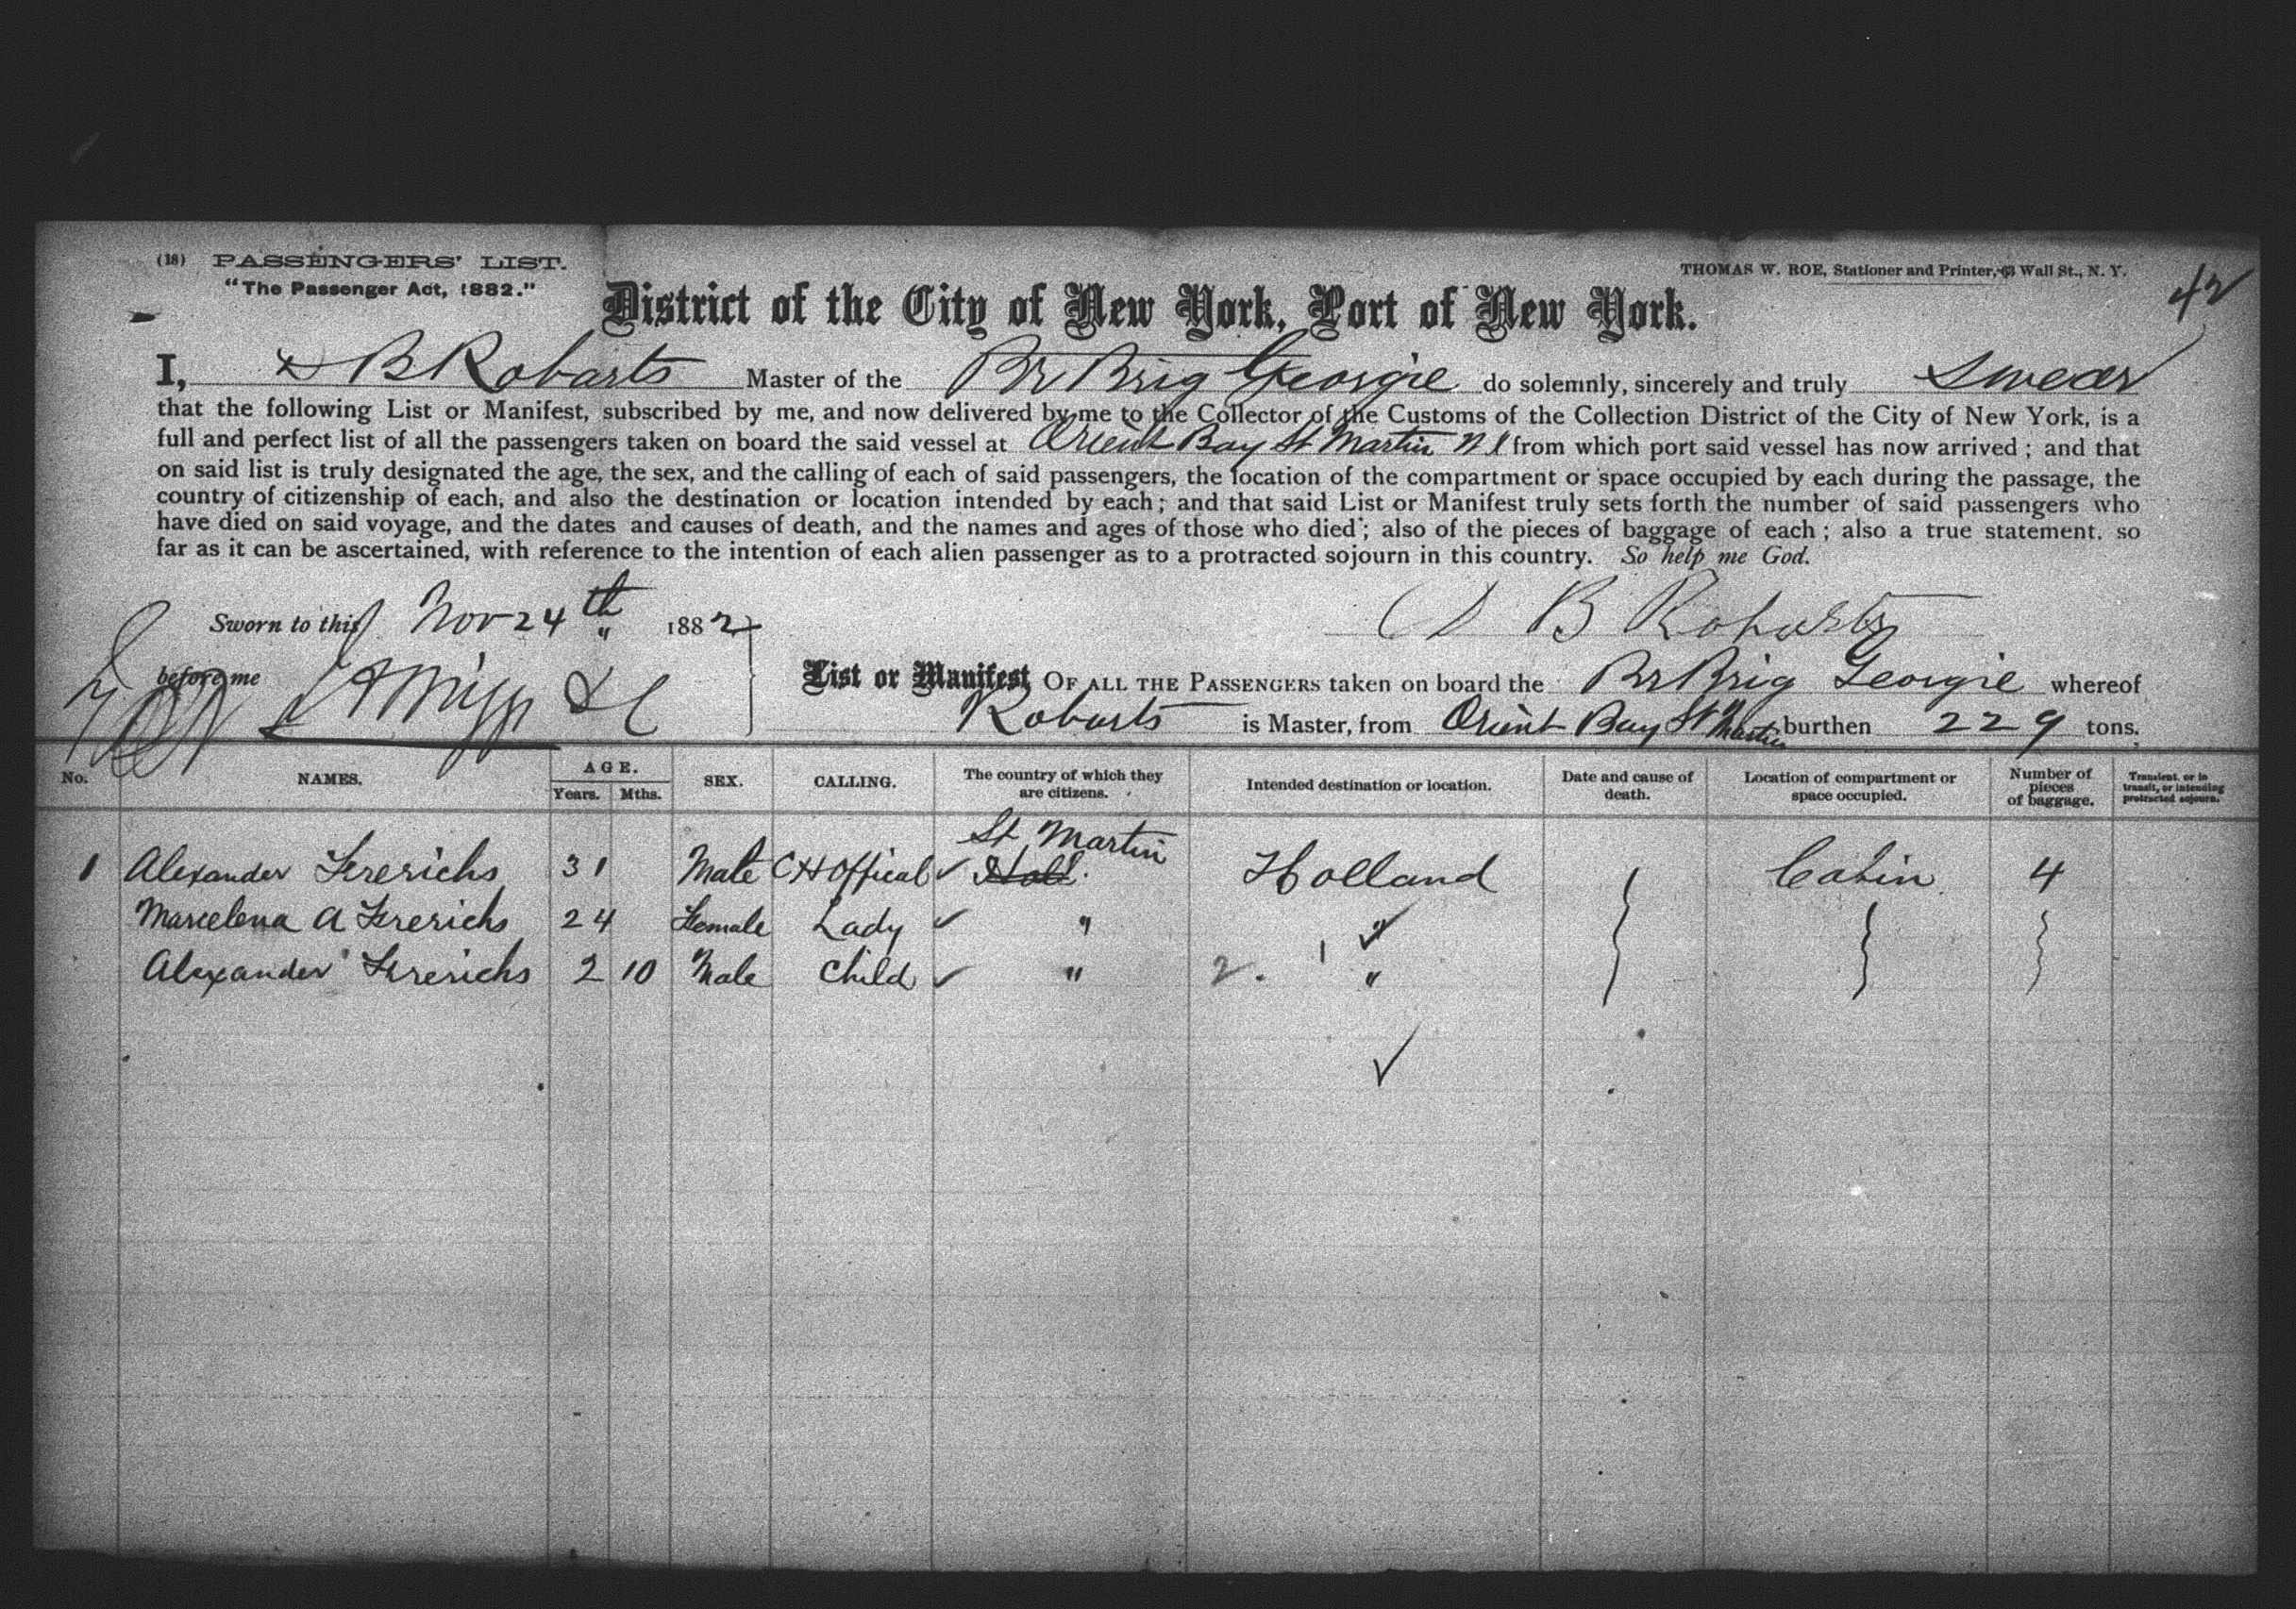 (18) PASSENGERS' LIST.
"The Passenger Act, 1882."
THOMAS W. ROE, Stationer and Printer, 63 Wall St., N. Y.
42
District of the City of New York, Port of New York.
I, D B Robarts Master of the Br Brig Georgie do solemnly, sincerely and truly swear
that the following List or Manifest, subscribed by me, and now delivered by me to the Collector of the Customs of the Collection District of the City of New York, is a
full and perfect list of all the passengers taken on board the said vessel at Orient Bay St Martin from which port said vessel has now arrived; and that
on said list is truly designated the age, the sex, and the calling of each of said passengers, the location of the compartment or space occupied by each during the passage, the
country of citizenship of each, and also the destination or location intended by each; and that said List or Manifest truly sets forth the number of said passengers who
have died on said voyage, and the dates and causes of death, and the names and ages of those who died; also of the pieces of baggage of each; also a true statement, so
far as it can be ascertained, with reference to the intention of each alien passenger as to a protracted sojourn in this country. So help me God.
Sworn to this Nov 24th 1882
D B Robarts
before me
List or Manifest OF ALL THE PASSENGERS taken on board the Br Brig Georgie whereof
Robarts is Master, from Orient Bay St Martin burthen 229 tons.
No. NAMES. AGE. Years. Mths. SEX. CALLING. The country of which they are citizens. Intended destination or location. Date and cause of death. Location of compartment or space occupied. Number of pieces of baggage. Transient, or in transit, or intending protracted sojourn.
St Martin
1 Alexander Frerichs 31 Male C H Offical ✓ Holl. Holland Cabin 4
Marcelena A Frerichs 24 Female Lady ✓ " " ✓
Alexander Frerichs 2 10 Male Child ✓ " 2. 1 "
✓